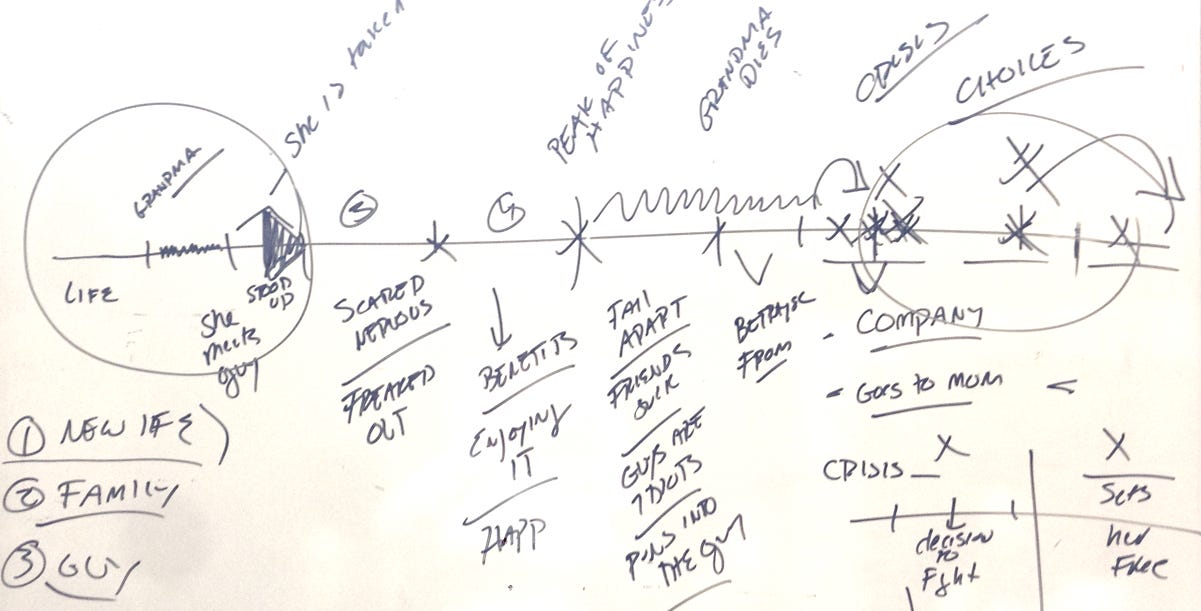 She is taken
PEAK OF
HAPPINESS
GRANDMA
DIES
CRISIS
CHOICES
GRANDMA
3
4
LIFE
STOOD
UP
She
meets
guy
SCARED
NERVOUS
FREAKED
OUT
BENEFITS
ENJOYING
IT
HAPP
FALL
APART
FRIENDS
SUCK
GUYS ARE
IDIOTS
RUNS INTO
THE GUY
BETRAYSE
FROM
- COMPANY
- GOES TO MOM
CRISIS
decision
to
Fight
Sets
her
Free
1 NEW LIFE
2 FAMILY
3 GUY